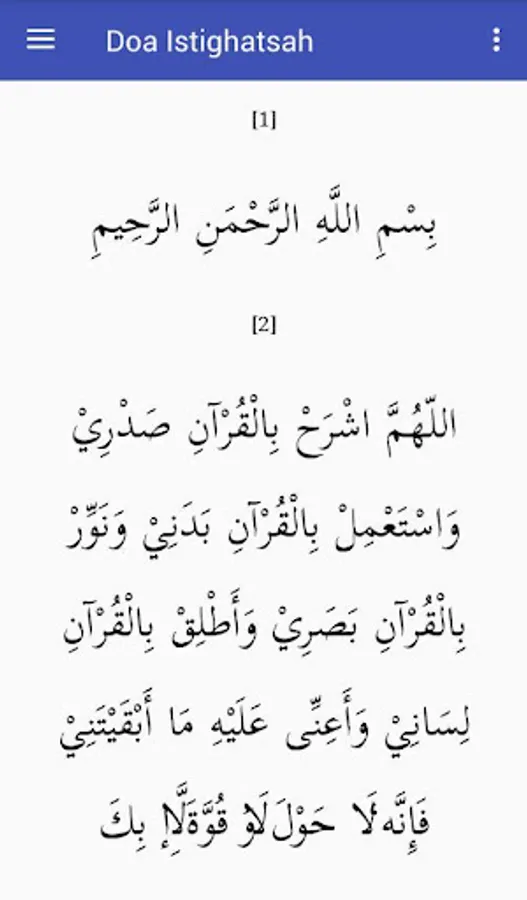 Doa Istighatsah
[1]
بِسْمِ اللَّهِ الرَّحْمَنِ الرَّحِيمِ
[2]
اللّهُمَّ اشْرَحْ بِالْقُرْآنِ صَدْرِيْ
وَاسْتَعْمِلْ بِالْقُرْآنِ بَدَنِيْ وَنَوِّرْ
بِالْقُرْآنِ بَصَرِيْ وَأَطْلِقْ بِالْقُرْآنِ
لِسَانِيْ وَأَعِنِّى عَلَيْهِ مَا أَبْقَيْتَنِيْ
فَإِنَّه لَا حَوْلَ وَلَا قُوَّةَ إِلَّا بِكَ